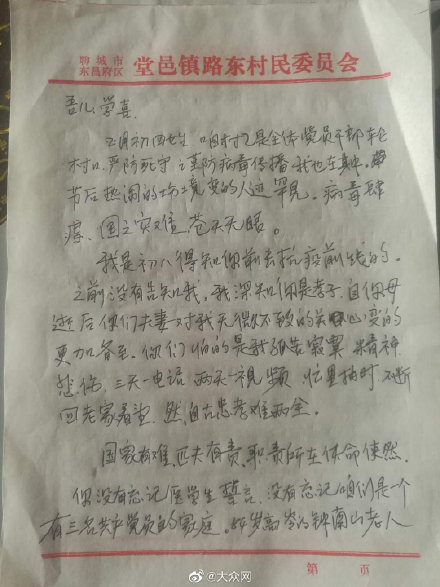 聊城市
东昌府区 堂邑镇路东村民委员会
吾儿学喜.
正月初四起 咱村又是全体党员干部轮
村口严防死守 谨防病毒传播 我也在其中. 春
节后热闹的场境变的人迹罕见. 病毒肆
虐、国之灾难 苍天无眼。
我是初八得知你前去抗疫前线的.
之前没有告知我. 我深知你是孝子. 自你母
逝后你们夫妻对我无微不致的关心变的
更加备至. 你们怕的是我孤苦寂寞 精神
悲伤. 三天一电话 两天一视频 忙里抽时 不断
回老家看望. 然自古忠孝难两全。
国家有难 匹夫有责. 职责所在使命使然.
你没有忘记医学生誓言. 没有忘记咱们是一个
有三名共产党员的家庭。84岁高龄的钟南山老人
第 页
@大众网